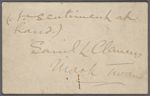 (No sentiment at
hand.)
Saml L. Clemens
Mark Twain